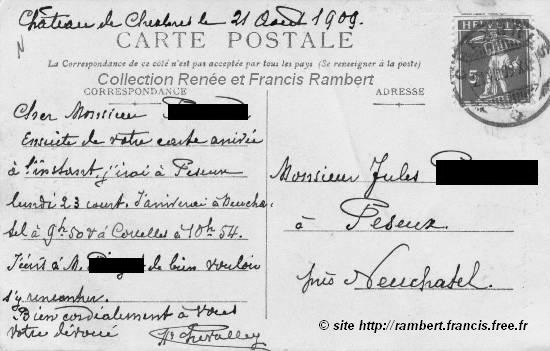 Château de Chesbres le 21 Août 1909.
N
CARTE POSTALE
HELVETIA
5
La Correspondance de ce côté n'est pas acceptée par tous les pays (Se renseigner à la poste)
Collection Renée et Francis Rambert
CORRESPONDANCE
Cher Monsieur
Ensuite de votre carte arrivée
à l'instant, j'irai à Peseux
lundi 23 court. J'arriverai à Neucha-
tel à 9h 50 & à Corcelles à 10h 54.
J'écris à M. de bien vouloir
s'y rencontrer.
Bien cordialement à vous
Votre dévoué
Chevalley
ADRESSE
Monsieur Jules
à Peseux
près Neuchatel.
© site http://rambert.francis.free.fr